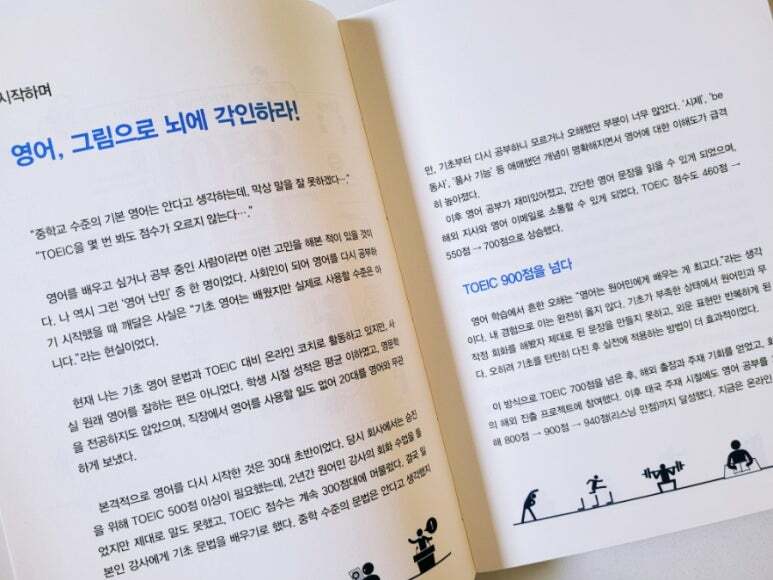 시작하며
영어, 그림으로 뇌에 각인하라!
"중학교 수준의 기본 영어는 안다고 생각하는데, 막상 말을 잘 못하겠다…."
"TOEIC을 몇 번 봐도 점수가 오르지 않는다…."
영어를 배우고 싶거나 공부 중인 사람이라면 이런 고민을 해본 적이 있을 것이
다. 나 역시 그런 '영어 난민' 중 한 명이었다. 사회인이 되어 영어를 다시 공부하
기 시작했을 때 깨달은 사실은 "기초 영어는 배웠지만 실제로 사용할 수준은 아
니다."라는 현실이었다.
현재 나는 기초 영어 문법과 TOEIC 대비 온라인 코치로 활동하고 있지만, 사
실 원래 영어를 잘하는 편은 아니었다. 학생 시절 성적은 평균 이하였고, 영문학
을 전공하지도 않았으며, 직장에서 영어를 사용할 일도 없어 20대를 영어와 무관
하게 보냈다.
본격적으로 영어를 다시 시작한 것은 30대 초반이었다. 당시 회사에서는 승진
을 위해 TOEIC 500점 이상이 필요했는데, 2년간 원어민 강사의 회화 수업을 들
었지만 제대로 말도 못했고, TOEIC 점수는 계속 300점대에 머물렀다. 결국 일
본인 강사에게 기초 문법을 배우기로 했다. 중학 수준의 문법은 안다고 생각했지
만, 기초부터 다시 공부하니 모르거나 오해했던 부분이 너무 많았다. '시제', 'be
동사', '품사 기능' 등 애매했던 개념이 명확해지면서 영어에 대한 이해도가 급격
히 높아졌다.
이후 영어 공부가 재미있어졌고, 간단한 영어 문장을 읽을 수 있게 되었으며,
해외 지사와 영어 이메일로 소통할 수 있게 되었다. TOEIC 점수도 460점 →
550점 → 700점으로 상승했다.
TOEIC 900점을 넘다
영어 학습에서 흔한 오해는 "영어는 원어민에게 배우는 게 최고다."라는 생각
이다. 내 경험으로 이는 완전히 옳지 않다. 기초가 부족한 상태에서 원어민과 무
작정 회화를 해봤자 제대로 된 문장을 만들지 못하고, 외운 표현만 반복하게 된
다. 오히려 기초를 탄탄히 다진 후 실전에 적용하는 방법이 더 효과적이었다.
이 방식으로 TOEIC 700점을 넘은 후, 해외 출장과 주재 기회를 얻었고,
의 해외 진출 프로젝트에 참여했다. 이후 태국 주재 시절에도 영어 공부를
해 800점 → 900점 → 940점(리스닝 만점)까지 달성했다. 지금은 온라인